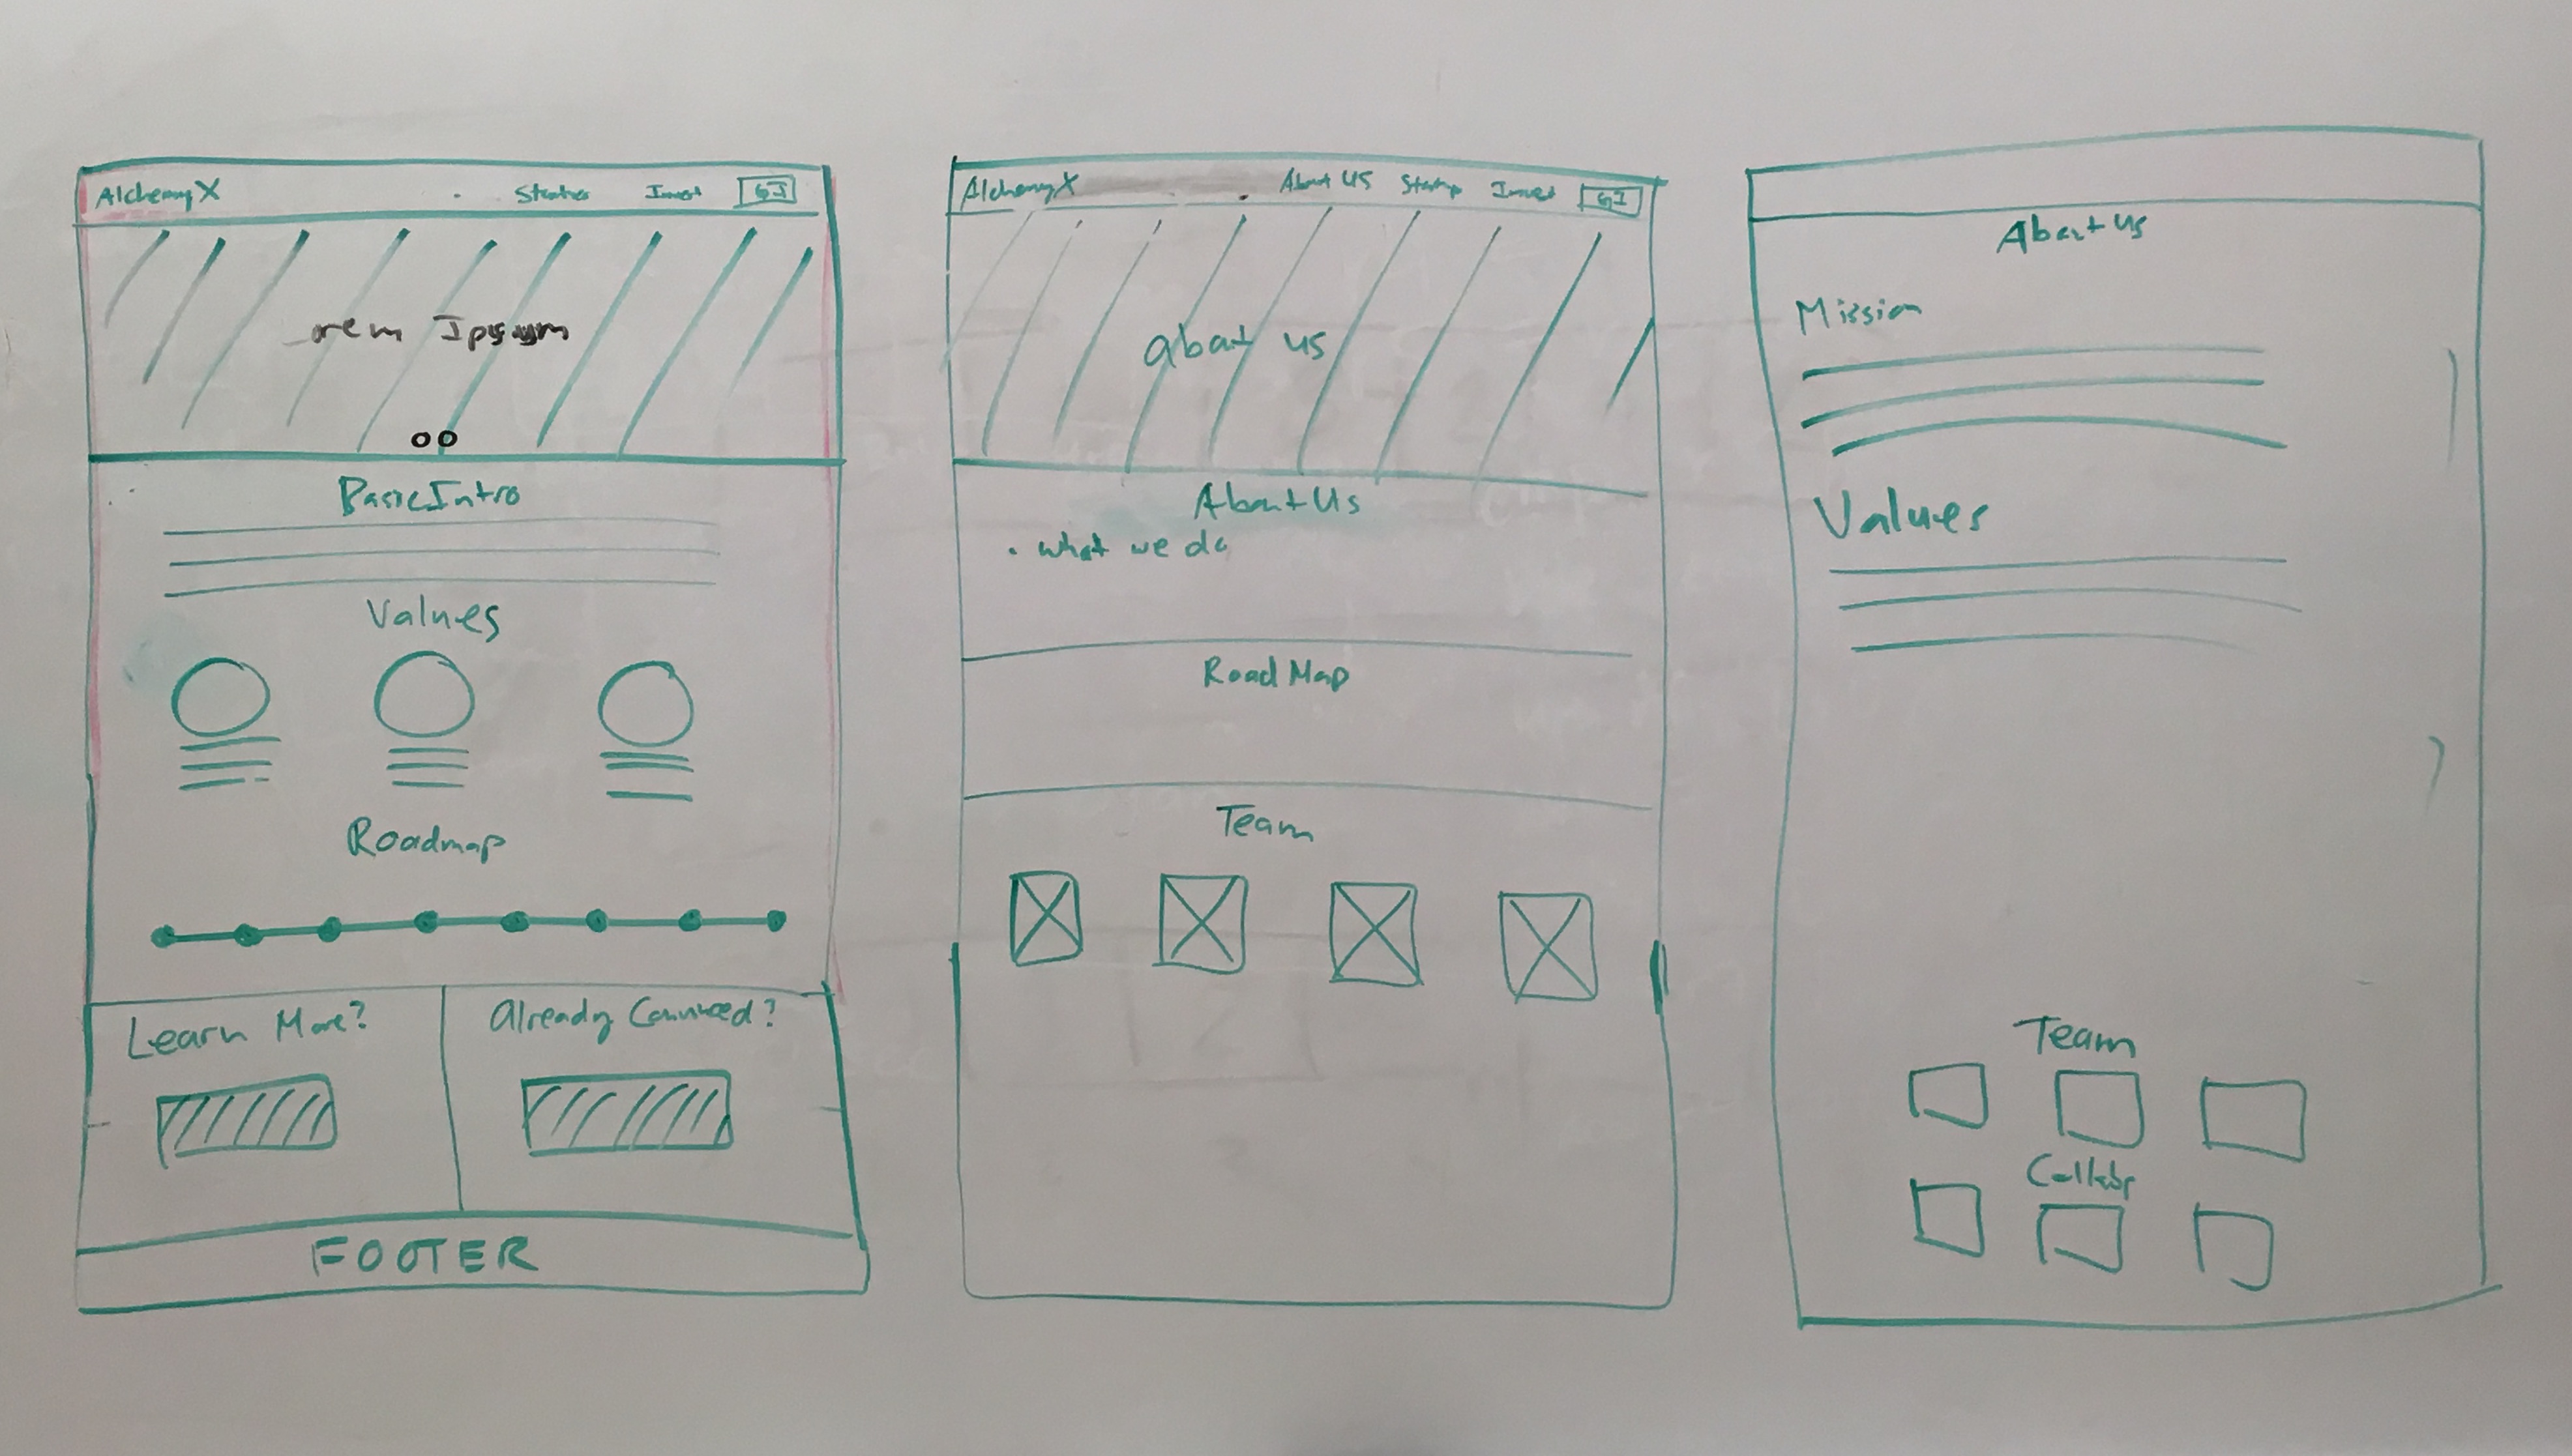 AlchemyX Invest GI
orem Ipsum
Basic Intro
Values
Roadmap
Learn More? Already Convinced?
FOOTER
AlchemyX About US Startup Invest GI
about us
About Us
• what we do
Road Map
Team
About us
Mission
Values
Team
Collabs